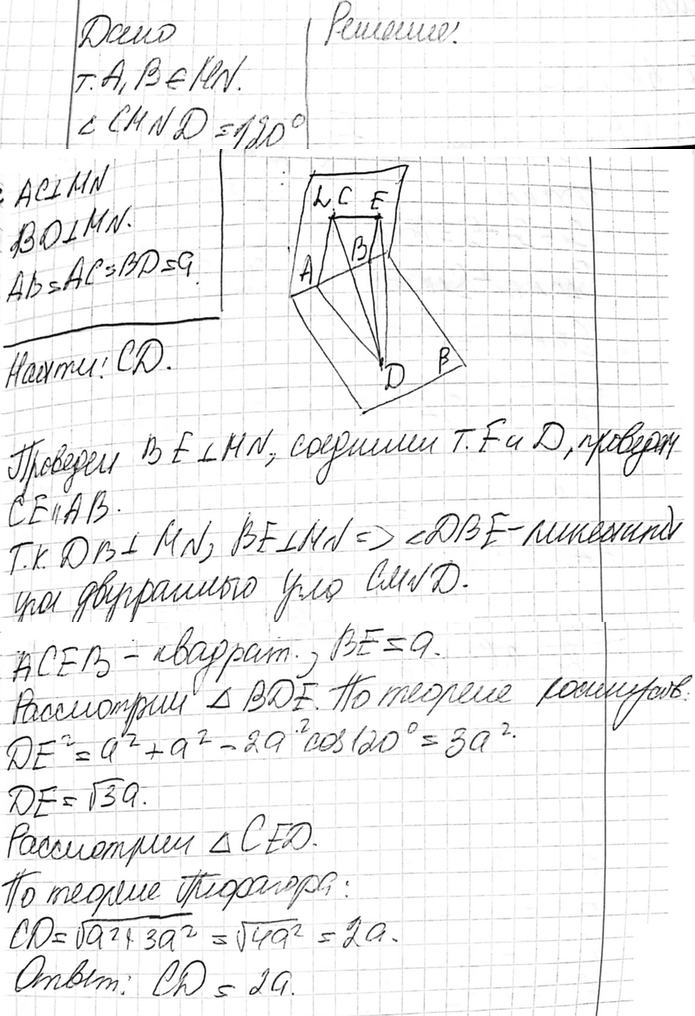 Дано
Решение:
т. A, B ∈ MN.
∠ CMND = 120°
AC ⊥ MN
BD ⊥ MN.
AB = AC = BD = a.
Найти: CD.
L C E
A B
D B
Проведем BE ⊥ MN, соединим т. E и D, проведем
CE ∥ AB.
Т.к. DB ⊥ MN, BE ⊥ MN => ∠DBE - линейный
угол двугранного угла CMND.
ACEB - квадрат., BE = a.
Рассмотрим △ BDE. По теореме косинусов:
DE² = a² + a² - 2a² cos 120° = 3a².
DE = √3a.
Рассмотрим △ CED.
По теореме Пифагора:
CD = √a² + 3a² = √4a² = 2a.
Ответ: CD = 2a.